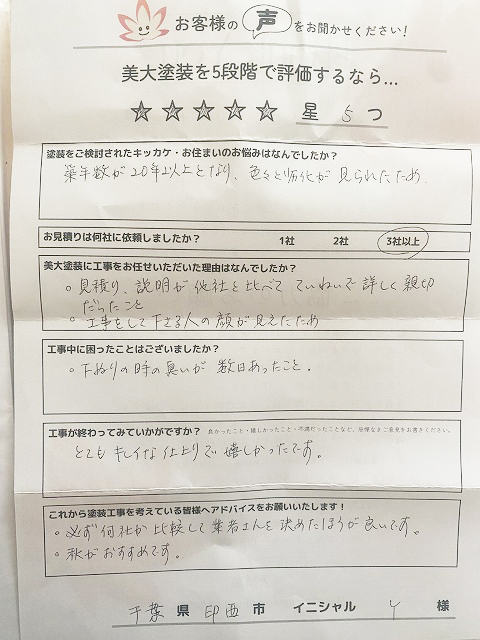 お客様の声をお聞かせください!
美大塗装を5段階で評価するなら...
☆☆☆☆☆ 星 5 つ
塗装をご検討されたキッカケ・お住まいのお悩みはなんでしたか?
築年数が20年以上となり、色々と劣化が見られたため
お見積りは何社に依頼しましたか? 1社 2社 3社以上
美大塗装に工事をお任せいただいた理由はなんでしたか?
。見積り、説明が他社と比べていねいで詳しく親切
だったこと
。工事をして下さる人の顔が見えたため
工事中に困ったことはございましたか?
。下ぬりの時の臭いが数日あったこと。
工事が終わってみていかがですか? 良かったこと・嬉しかったこと・不満だったことなど、忌憚なきご意見をお書きください。
とてもキレイな仕上りで嬉しかったです。
これから塗装工事を考えている皆様へアドバイスをお願いいたします!
。必ず何社か比較して業者さんを決めたほうが良いです。
。秋がおすすめです。
千葉 県 印西 市 イニシャル Y 様